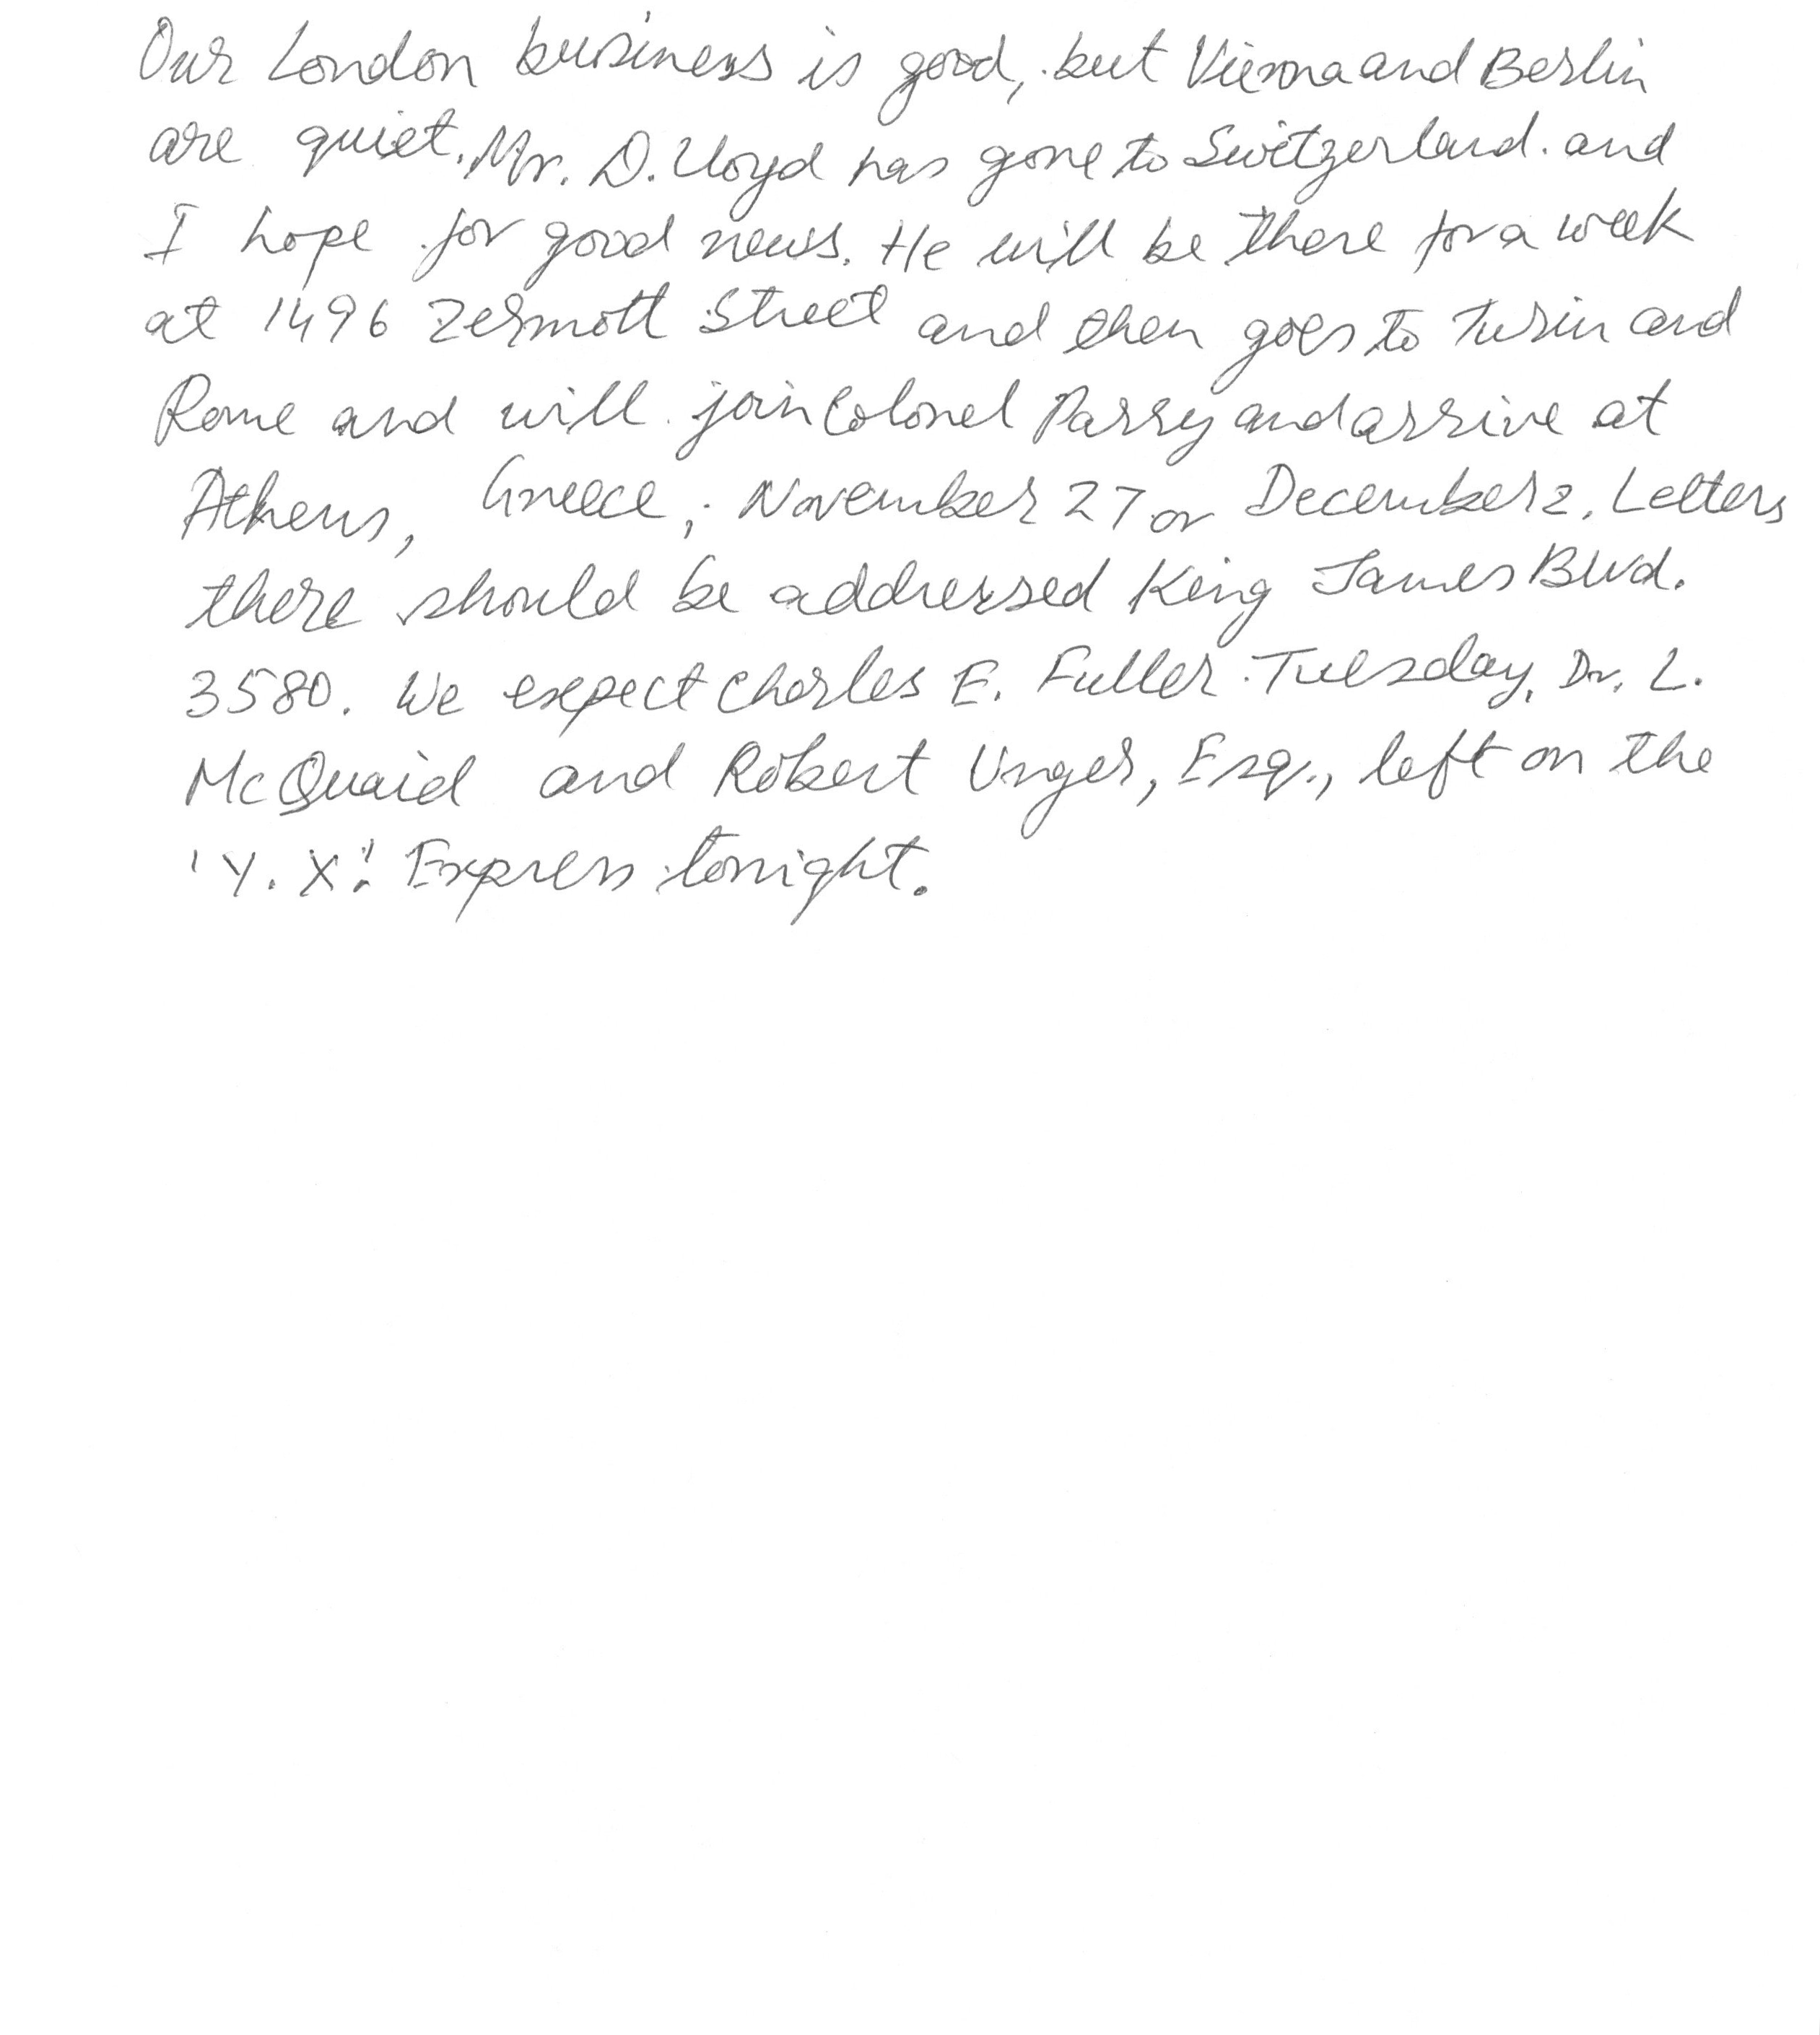 Our London business is good, but Vienna and Berlin
are quiet. Mr. D. Lloyd has gone to Switzerland. and
I hope for good news. He will be there for a week
at 1496 Zermott Street and then goes to Turin and
Rome and will join Colonel Parry and arrive at
Athens, Greece, November 27 or December 2. Letters
there should be addressed King James Blvd.
3580. We expect Charles E. Fuller Tuesday. Dr. L.
McQuaid and Robert Unger, Esq., left on the
'Y. X.' Express tonight.